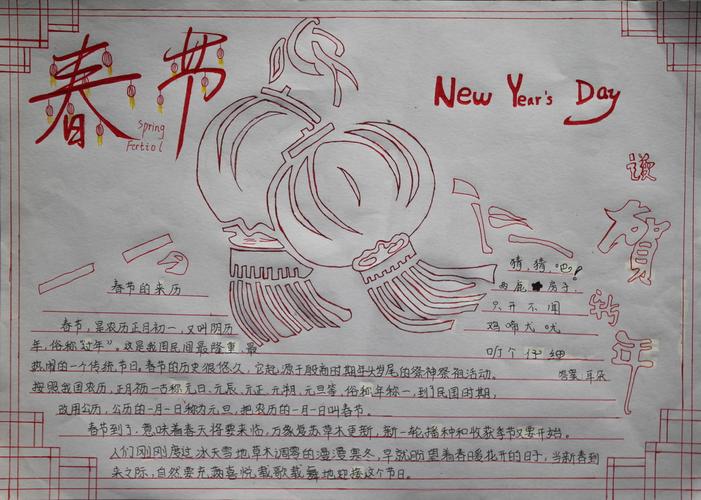 春节
Spring
Fertiol
New Year's Day
谨
贺
新
年
猜,猜吧!
两扇 房子
只开不闻
鸡啼犬吠
听个仔细
答案:耳朵
春节的来历
春节,是农历正月初一,又叫阴历
年,俗称"过年"。这是我国民间最隆重、最
热闹的一个传统节日。春节的历史很悠久,它起源于殷商时期年头岁尾的祭神祭祖活动。
按照我国农历,正月初一古称元日、元辰、元正、元朔、元旦等,俗称年初一,到了民国时期,
改用公历,公历的一月一日称为元旦,把农历的一月一日叫春节。
春节到了,意味着春天将要来临,万象复苏草木更新,新一轮播种和收获季节又要开始。
人们刚刚度过冰天雪地草木凋零的漫漫寒冬,早就盼望着春暖花开的日子,当新春到
来之际,自然要充满喜悦载歌载舞地迎接这个节日。